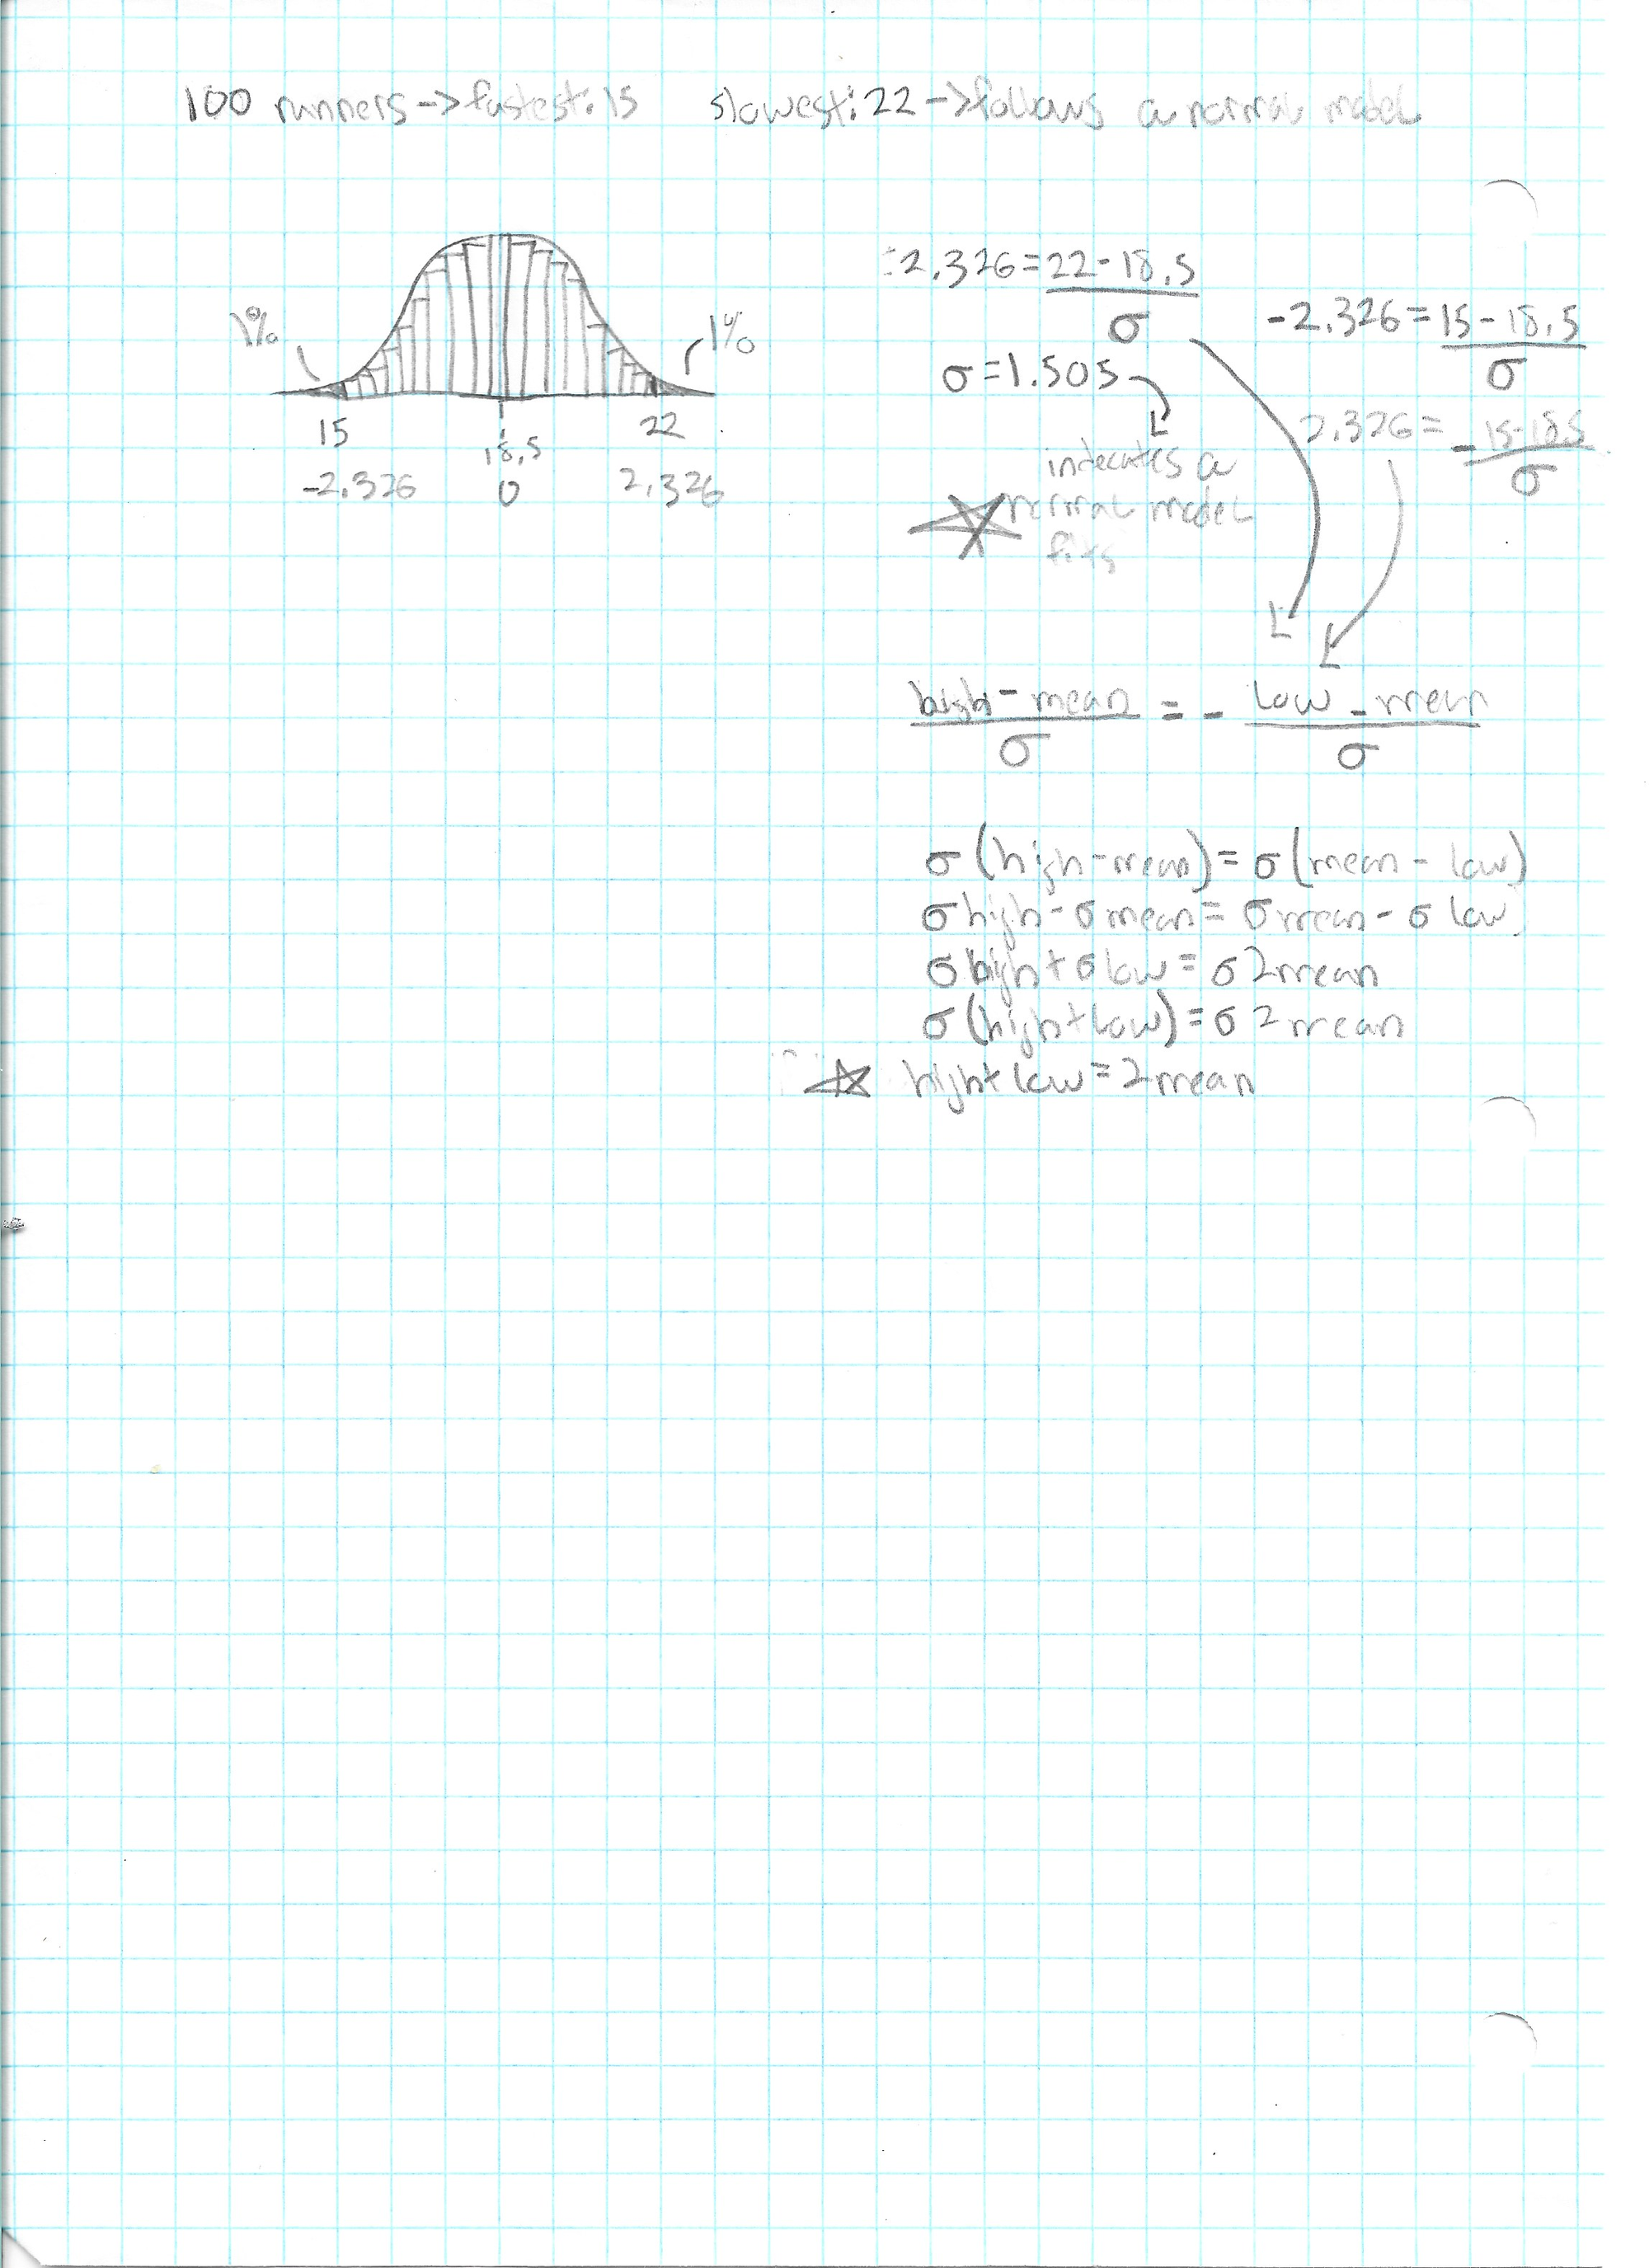 100 runners -> fastest: 15 slowest: 22 -> follows a normal model
1%
1%
15
18.5
22
-2.326
0
2.326
2.326 = 22 - 18.5
σ
σ = 1.505
indecates a
normal model
fits
-2.326 = 15 - 18.5
σ
2.326 = - 15 - 18.5
σ
high - mean = - low - mean
σ σ
σ (high - mean) = σ (mean - low)
σ high - σ mean = σ mean - σ low
σ high + σ low = σ 2 mean
σ (high + low) = σ 2 mean
high + low = 2 mean